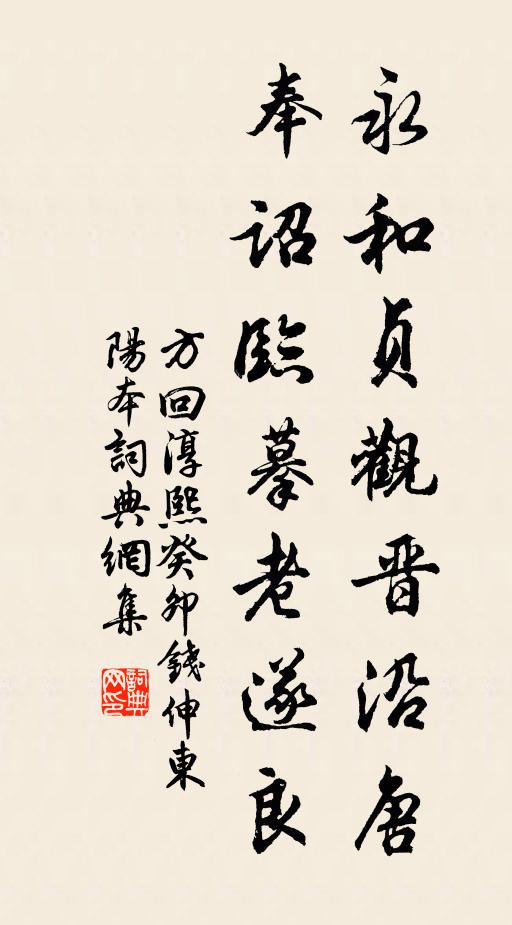 永和貞觀晋沿唐
奉詔臨摹老遂良
方回淳熙癸卯錢伸東
陽本詞典網集
詞典
网印